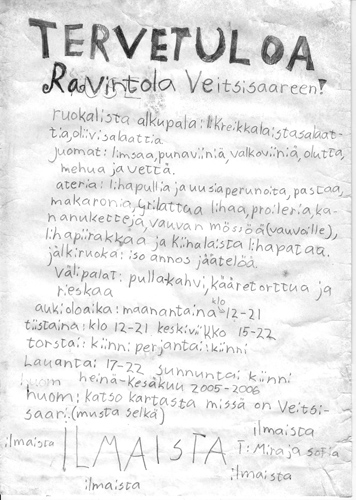 TERVETULOA
Ravintola Veitsisaareen!
ruokalista alkupala: Kreikkalaistasalaat-
tia, oliivisalaattia
juomat: limsaa, punaviiniä, valkoviiniä, olutta,
mehua ja vettä.
ateria: lihapullia ja uusiaperunoita, pastaa,
makaronia, grilattua lihaa, proileria, ka-
nanuketteja, vauvan mössöä (vauvoille),
lihapiirakkaa ja Kiinalaista lihapataa.
jälkiruoka: iso annos jäätelöä.
välipalat: pulla+kahvi, kääretorttua ja
rieskaa
aukioloaika: maanantaina klo 12-21
tiistaina: klo 12-21 keskiviikko 15-22
torstai: kiinni perjantai: kiinni
Lauantai 17-22 sunnuntai kiinni
heinä-kesäkuu 2005-2006
huom: katso kartasta missä on Veitsi-
saari. (musta selkä)
ilmaista ILMAISTA ilmaista
T: Mira ja sofia
ilmaista ilmaista